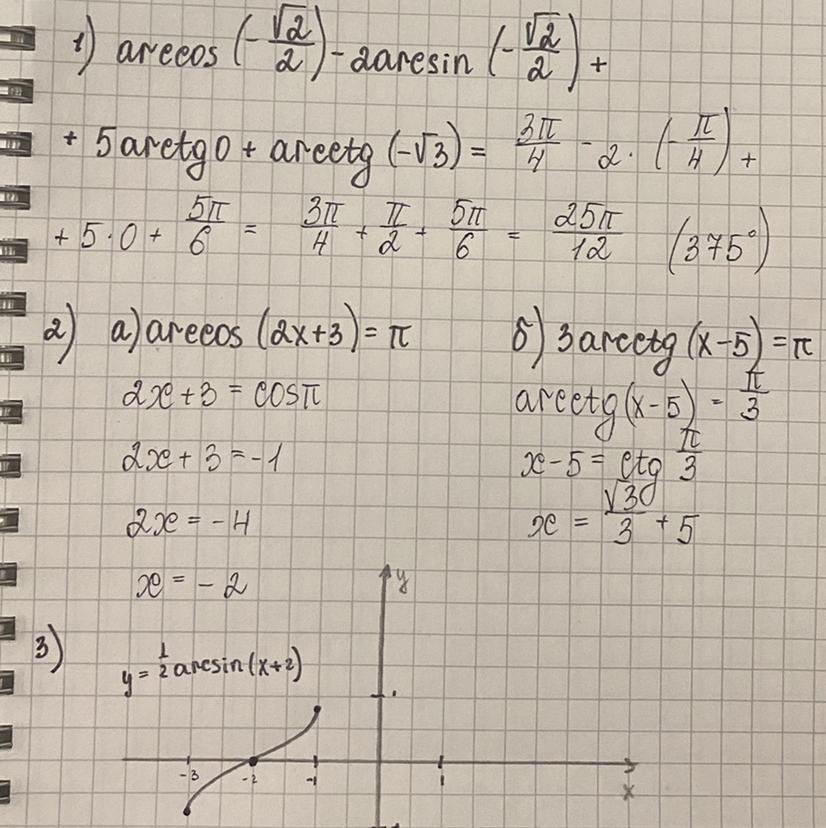 1) arccos (-√2/2) - 2arcsin (-√2/2) +
+ 5arctg0 + arcctg (-√3) = 3π/4 - 2 · (-π/4) +
+ 5·0 + 5π/6 = 3π/4 + π/2 + 5π/6 = 25π/12 (375°)
2) а) arccos (2x+3) = π
2x+3 = cosπ
2x+3 = -1
2x = -4
x = -2
б) 3arcctg (x-5) = π
arcctg (x-5) = π/3
x-5 = ctg π/3
x = √3/3 + 5
3)
y = 1/2 arcsin (x+2)
y
-3 -2 -1 1
x